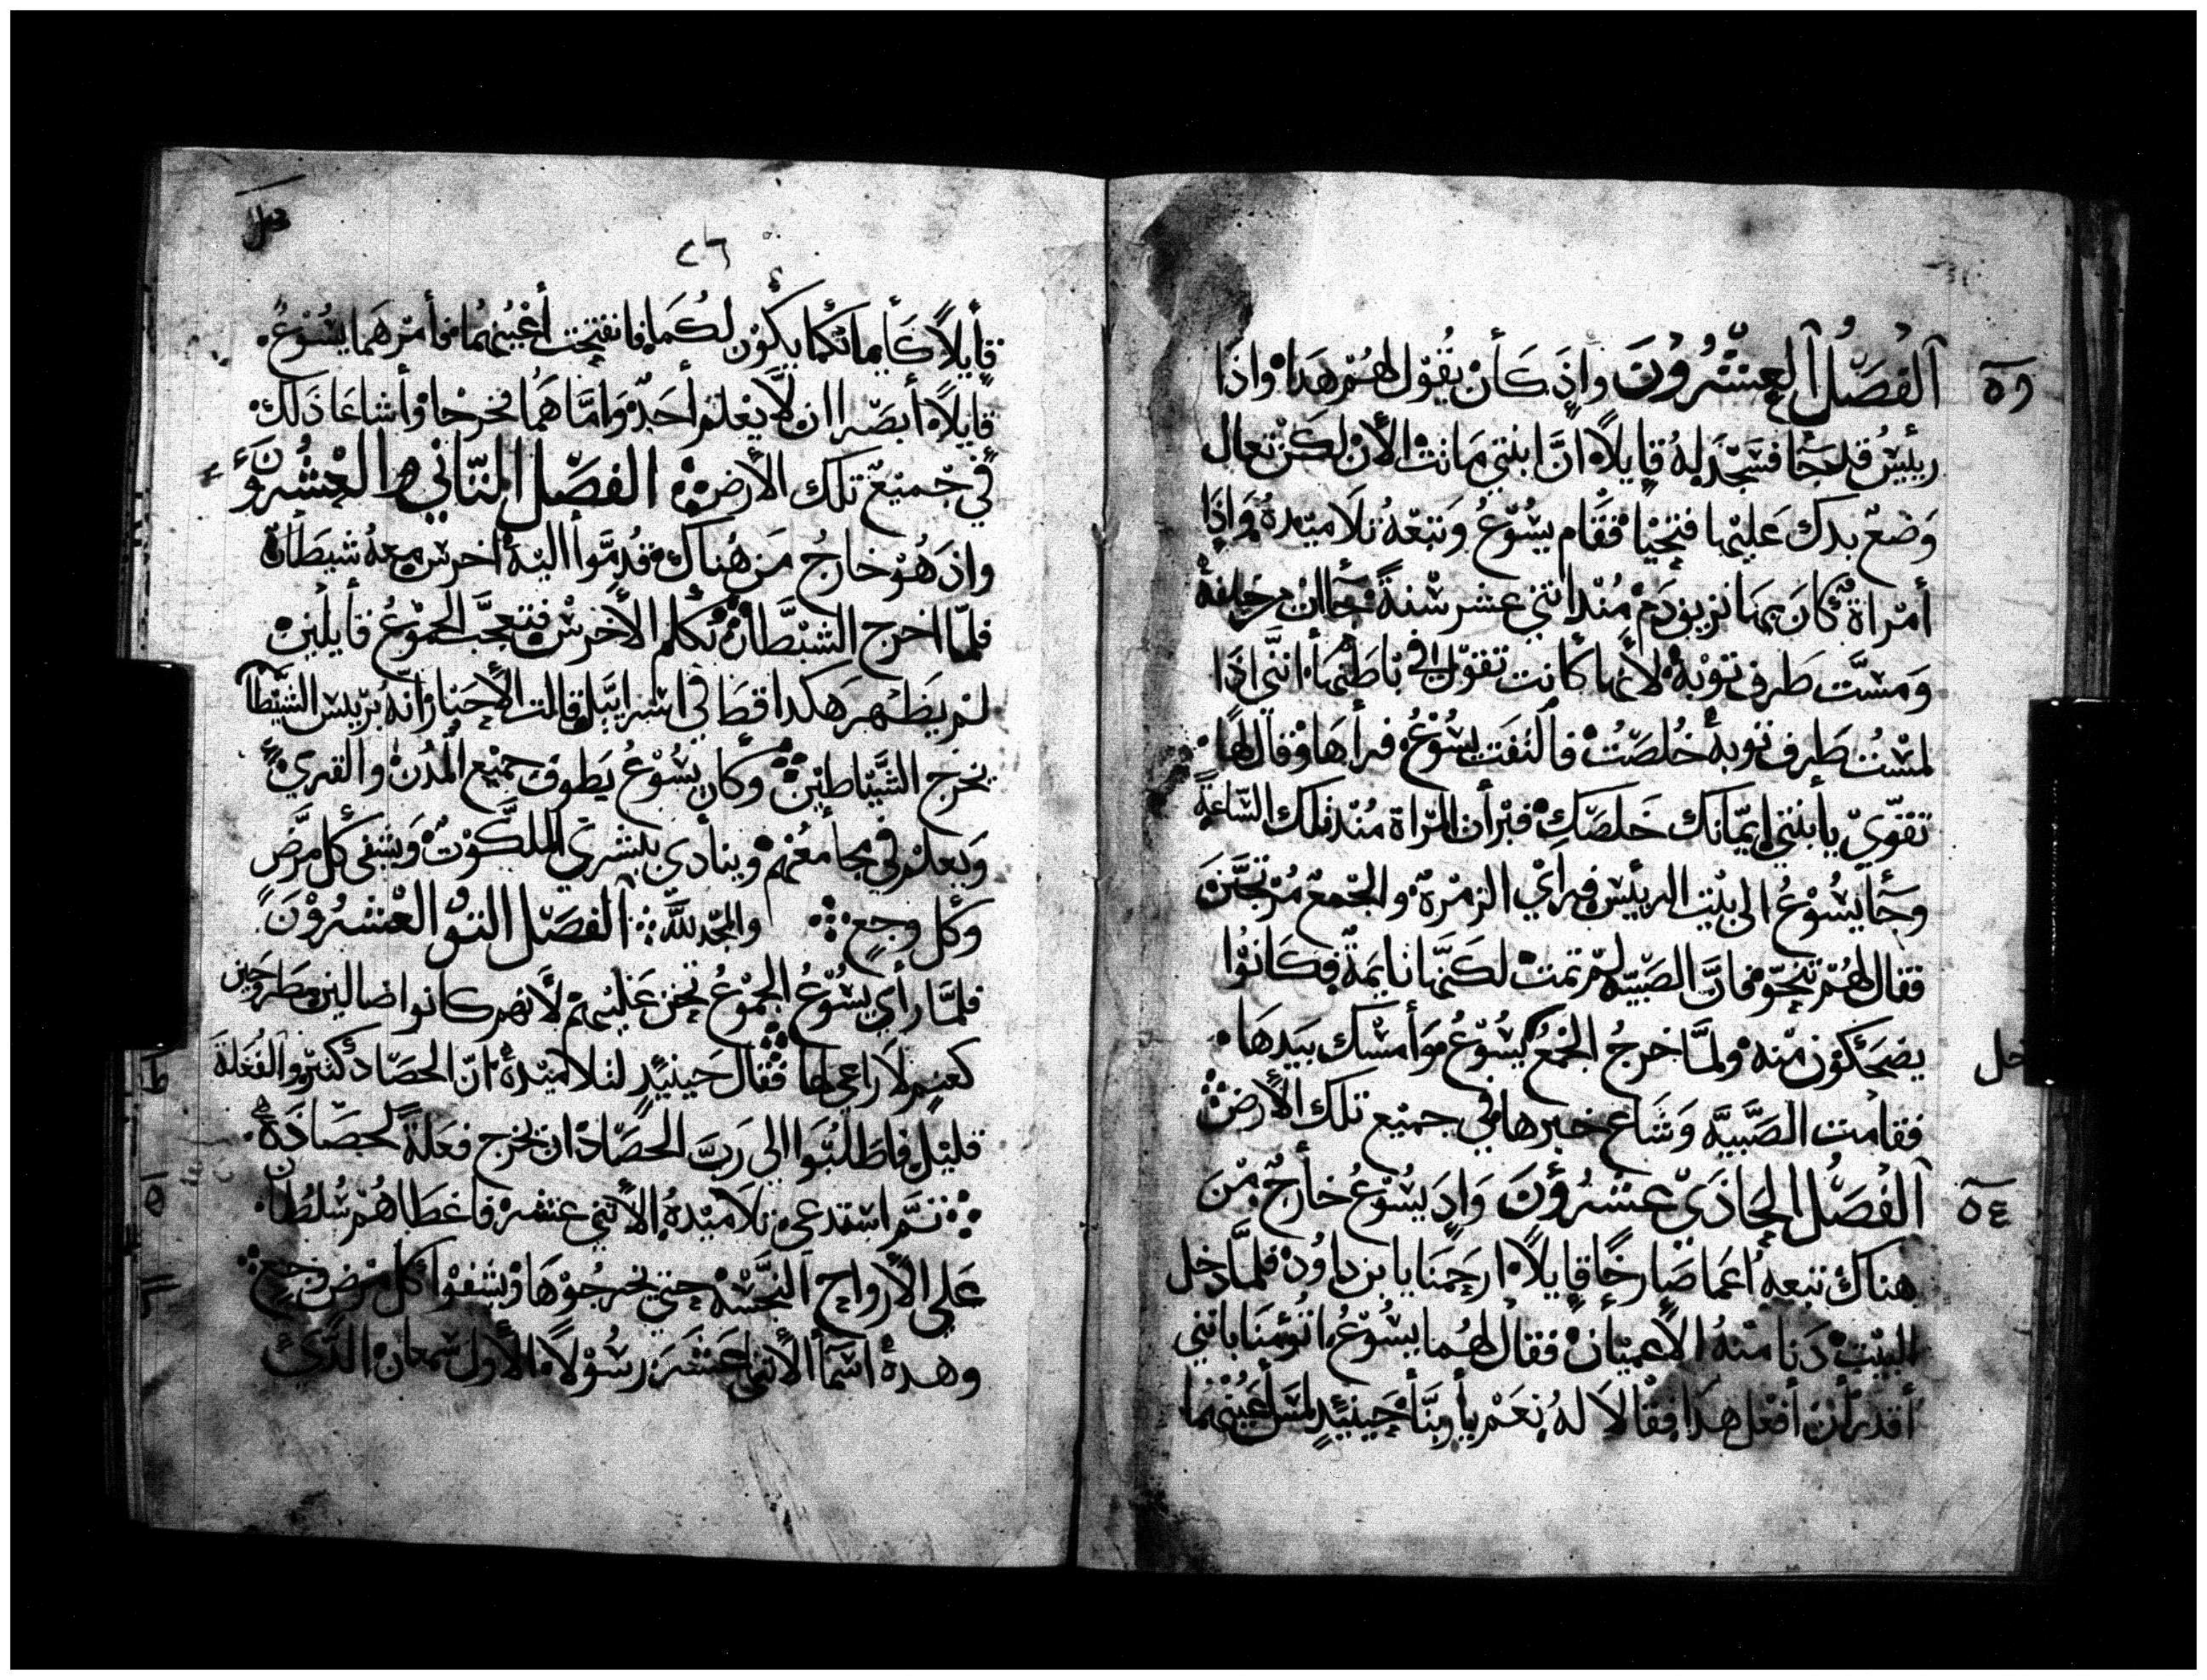 الفصل العشرون واذ كان يقول لهم هدا واذا
رييس قد جا فسجد له قايلا ان ابنتي ماتت الان لكن تعال
وضع يدك عليها فتحيا فقام يسوع وتبعه تلاميده واذا
امراة كان بها نزيف دم مند اتني عشر سنة جاات من خلفه
ومست طرف توبه لانها كانت تقول في باطنها انني ادا
لمست طرف توبه خلصت فالتفت يسوع فراها وقال لها
تقوي يا ابنتي ايمانك خلصك فبرات المراة مند تلك الساعة
وجا يسوع الى بيت الرييس فراي الزمرة والجمع مرتجين
فقال لهم تنحو فان الصبيه لم تمت لكنها نايمة فكانوا
يضحكون منه ولما خرج الجمع يسوع وامسك بيدها
فقامت الصبيه وشاع خبرها في جميع تلك الارض
الفصل الحادي عشرون واد يسوع خارج من
هناك تبعه اعما صارخا قايلا ارحمنا يا بن داود فلما دخل
البيت دنا منه الاعميان فقال لهما يسوع اتؤمنا بانني
اقدر ان افعل هدا فقالا له نعم يا ربنا حينيد لمس اعينهما
حل
٢٦
قايلا كايمانكما يكون لكما فانفتحت اعينهما فامرهما يسوع
قايلا ابصرا ان لا يعلم احد واما هما فخرجا واشاعا ذلك
في جميع تلك الارض الفصل التاني والعشرون
واذ هو خارج من هناك قدموا اليه اخرس معه شيطان
فلما اخرج الشيطان تكلم الاخرس فتعجب الجموع قايلين
لم يظهر هكدا قط في اسراييل قالت الاحبار انه برييس الشيطا
يخرج الشياطين وكان يسوع يطوف جميع المدن والقري
ويعلم في مجامعهم وينادي ببشري الملكوت ويشفى كل مرض
وكل وجع والمجد لله الفصل التو العشرون
فلما راي يسوع الجموع تحنن عليهم لانهم كانوا ضالين مطروحين
كغنم لا راعي لها فقال حينيد لتلاميده ان الحصاد كتير والفعلة
قليل فاطلبوا الى رب الحصاد ان يخرج فعلة لحصاده
تم استدعى تلاميده الاتني عشر فاعطاهم سلطان
على الارواح النجسه حتى يخرجوها ويشفوا كل مرض وجع
وهده اسما الاتنا عشر رسولا الاول سمعان الدي